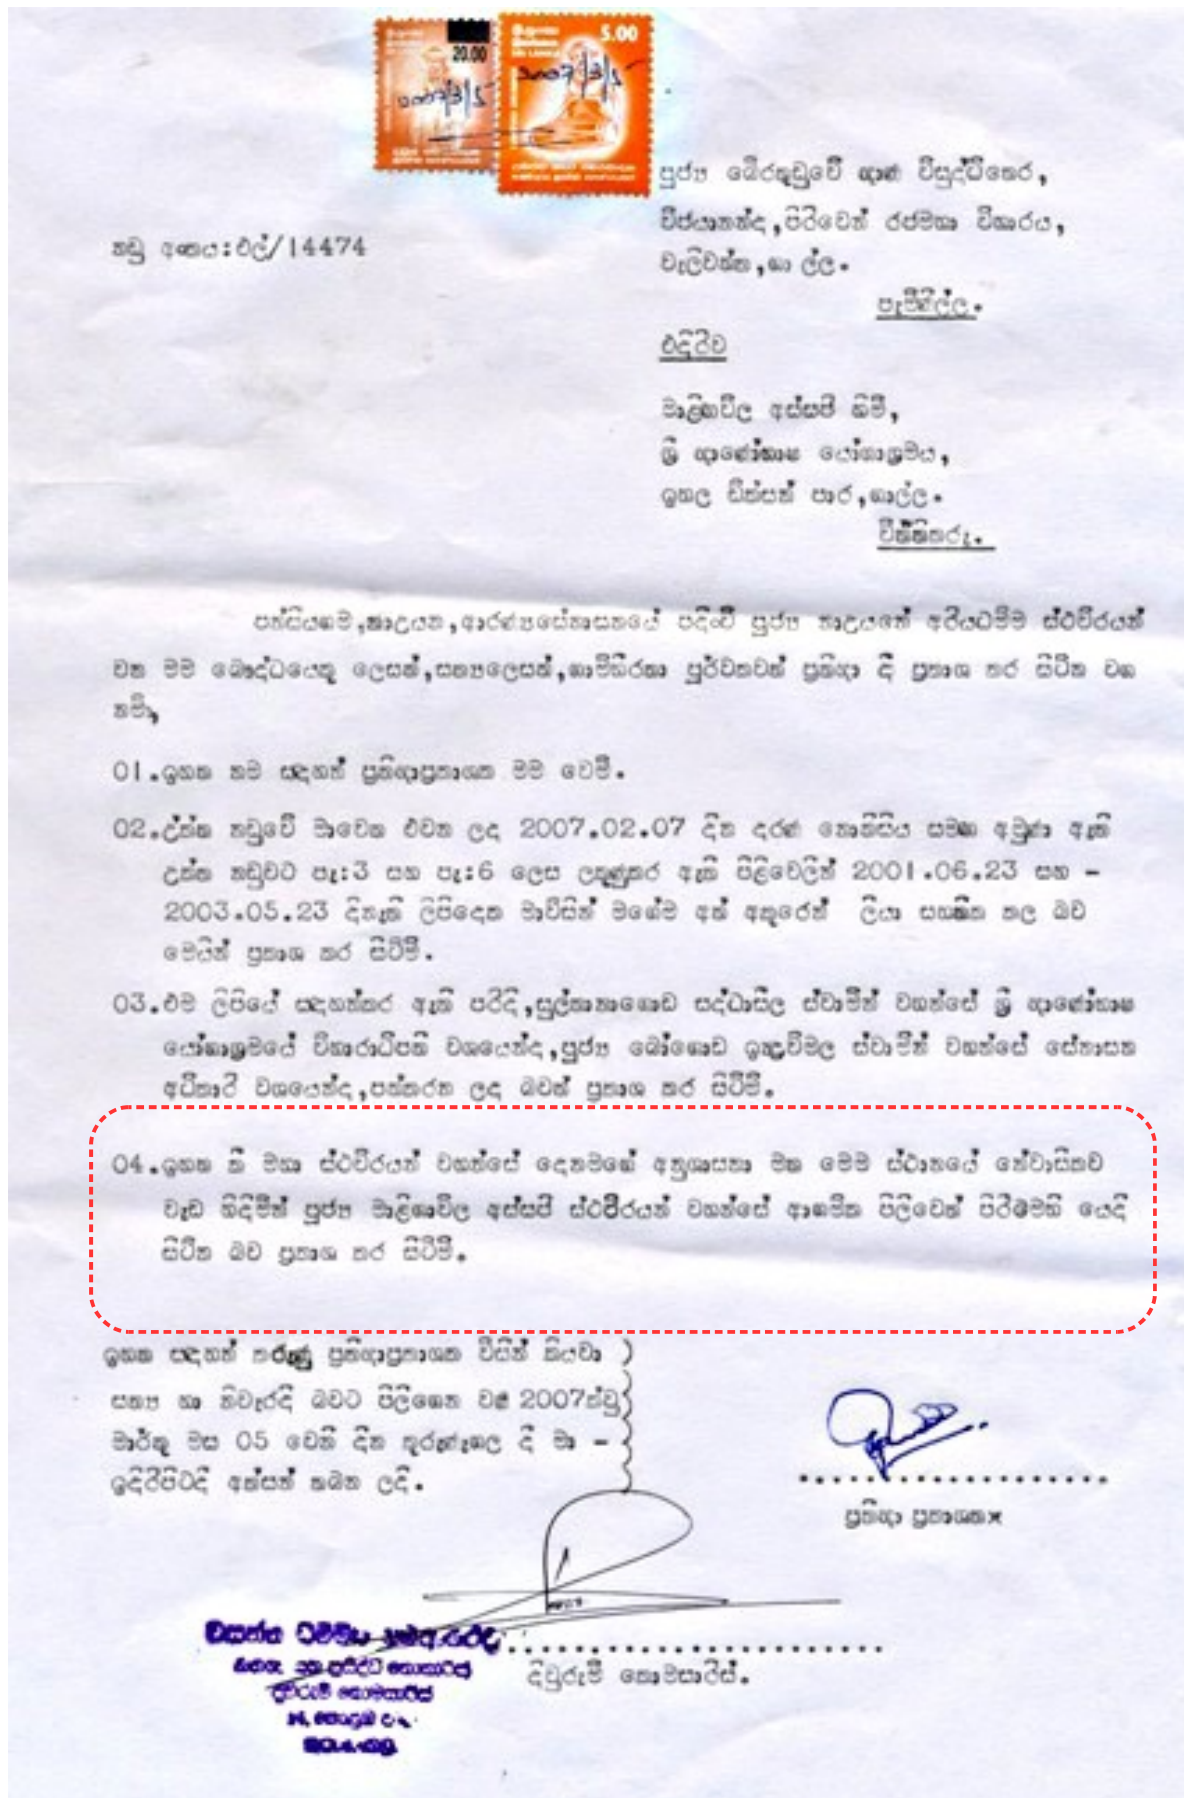 20.00
5.00
2007/3/5
2007/3/5
පූජ්‍ය බේරතුඩුවේ ඥාණ විසුද්ධිතෙර,
විජයානන්ද,පිරිවෙන් රජමහා විහාරය,
නඩු අංකය:එල්/14474
වැලිවත්ත,ගා ල්ල.
පැමිණිල්ල.
එදිරිව
මාළිගාවිල අස්සජි හිමි,
ශ්‍රී ඥාණෝභාෂ යෝගාශ්‍රමය,
ඉහල ඩික්සන් පාර,ගාල්ල.
විත්තිකරු.
පන්සියගම,නාඋයන,ආරණ්‍යසේනාසනයේ පදිංචි පූජ්‍ය නාඋයනේ අරියධම්ම ස්ථවිරයන්
වන මම බෞද්ධයෙකු ලෙසත්,සත්‍යලෙසත්,ගාම්භීරතා පූර්වකවත් ප්‍රතිඥා දී ප්‍රකාශ කර සිටින වග
නම්,
01.ඉහත නම සඳහන් ප්‍රතිඥාප්‍රකාශක මම වෙමි.
02.උක්ත නඩුවේ මාවෙත එවන ලද 2007.02.07 දින දරණ නොතිසිය සමඟ අමුණා ඇති
උක්ත නඩුවට පැ:3 සහ පැ:6 ලෙස ලකුණුකර ඇති පිළිවෙලින් 2001.06.23 සහ -
2003.05.23 දිනැති ලිපිදෙක මාවිසින් මගේම අත් අකුරෙන් ලියා සහතික කල බව
මෙයින් ප්‍රකාශ කර සිටිමි.
03.එම ලිපියේ සඳහන්කර ඇති පරිදි,සුල්තානාගොඩ සද්ධාසීල ස්වාමීන් වහන්සේ ශ්‍රී ඥාණෝභාෂ
යෝගාශ්‍රමයේ විහාරාධිපති වශයෙන්ද,පූජ්‍ය බෝගොඩ ඉඳුවිමල ස්වාමීන් වහන්සේ සේනාසන
අධිකාරී වශයෙන්ද,පත්කරන ලද බවත් ප්‍රකාශ කර සිටිමි.
04.ඉහත කී මහා ස්ථවිරයන් වහන්සේ දෙනමගේ අනුශාසනා මත මෙම ස්ථානයේ නේවාසිකව
වැඩ හිඳිමින් පූජ්‍ය මාළිගාවිල අස්සජි ස්ථවිරයන් වහන්සේ ආගමික පිලිවෙත් පිරීමෙහි යෙදී
සිටින බව ප්‍රකාශ කර සිටිමි.
ඉහත සඳහන් කරුණු ප්‍රතිඥාප්‍රකාශක විසින් කියවා
සත්‍ය හා නිවැරදි බවට පිලිගෙන වර්ෂ 2007ක්වු
මාර්තු මස 05 වෙනි දින කුරුණෑගල දී මා -
ඉදිරිපිටදී අත්සන් තබන ලදී.
ප්‍රතිඥා ප්‍රකාශක
දිවුරුම් කොමසාරිස්.
දිවුරුම් කොමසාරිස්